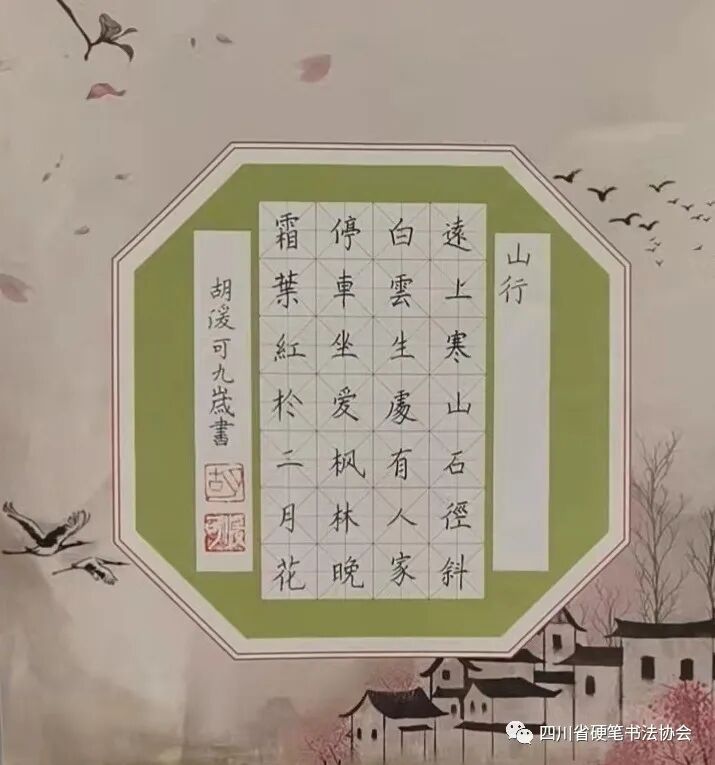 山行
遠上寒山石徑斜
白雲生處有人家
停車坐爱枫林晚
霜葉紅於二月花
胡湲可九歲書
四川省硬笔书法协会